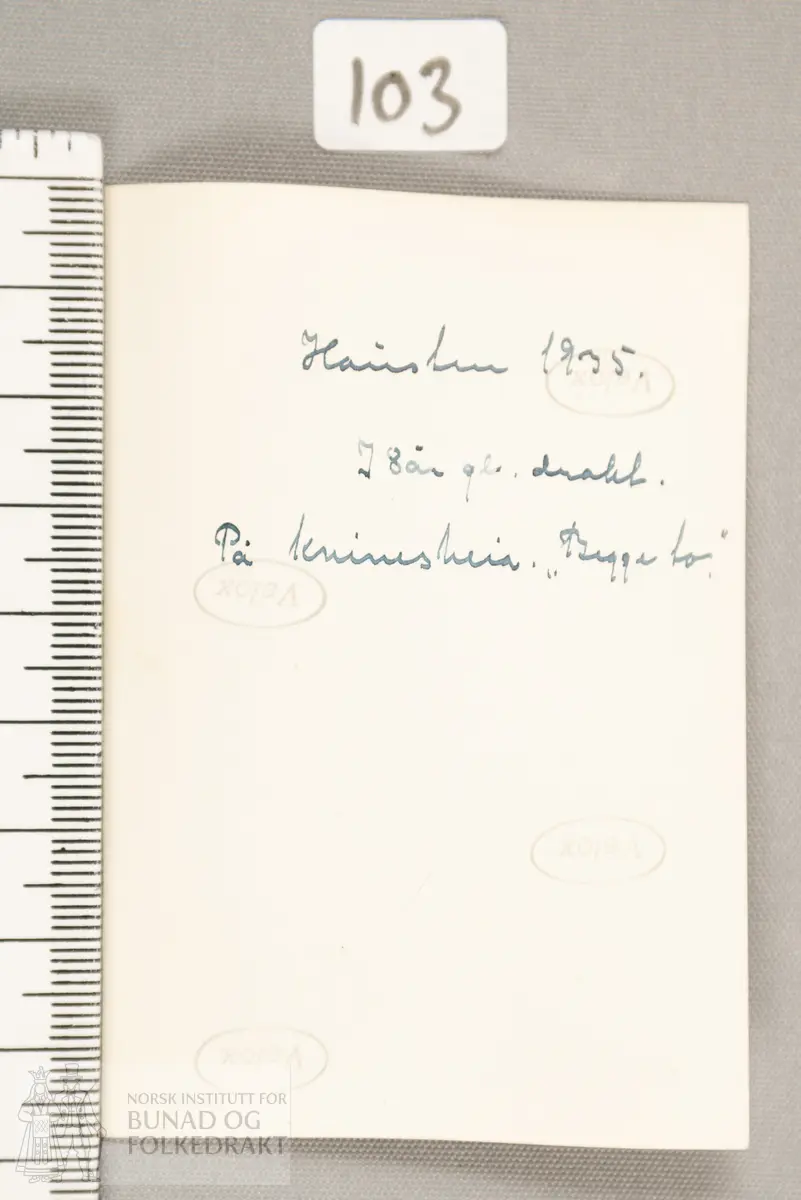 103
Hausten 1935.
Velox
I 8år gl. drakt.
På kvinesheia. „Begge to."
Velox
Velox
Velox
NORSK INSTITUTT FOR
BUNAD OG
FOLKEDRAKT